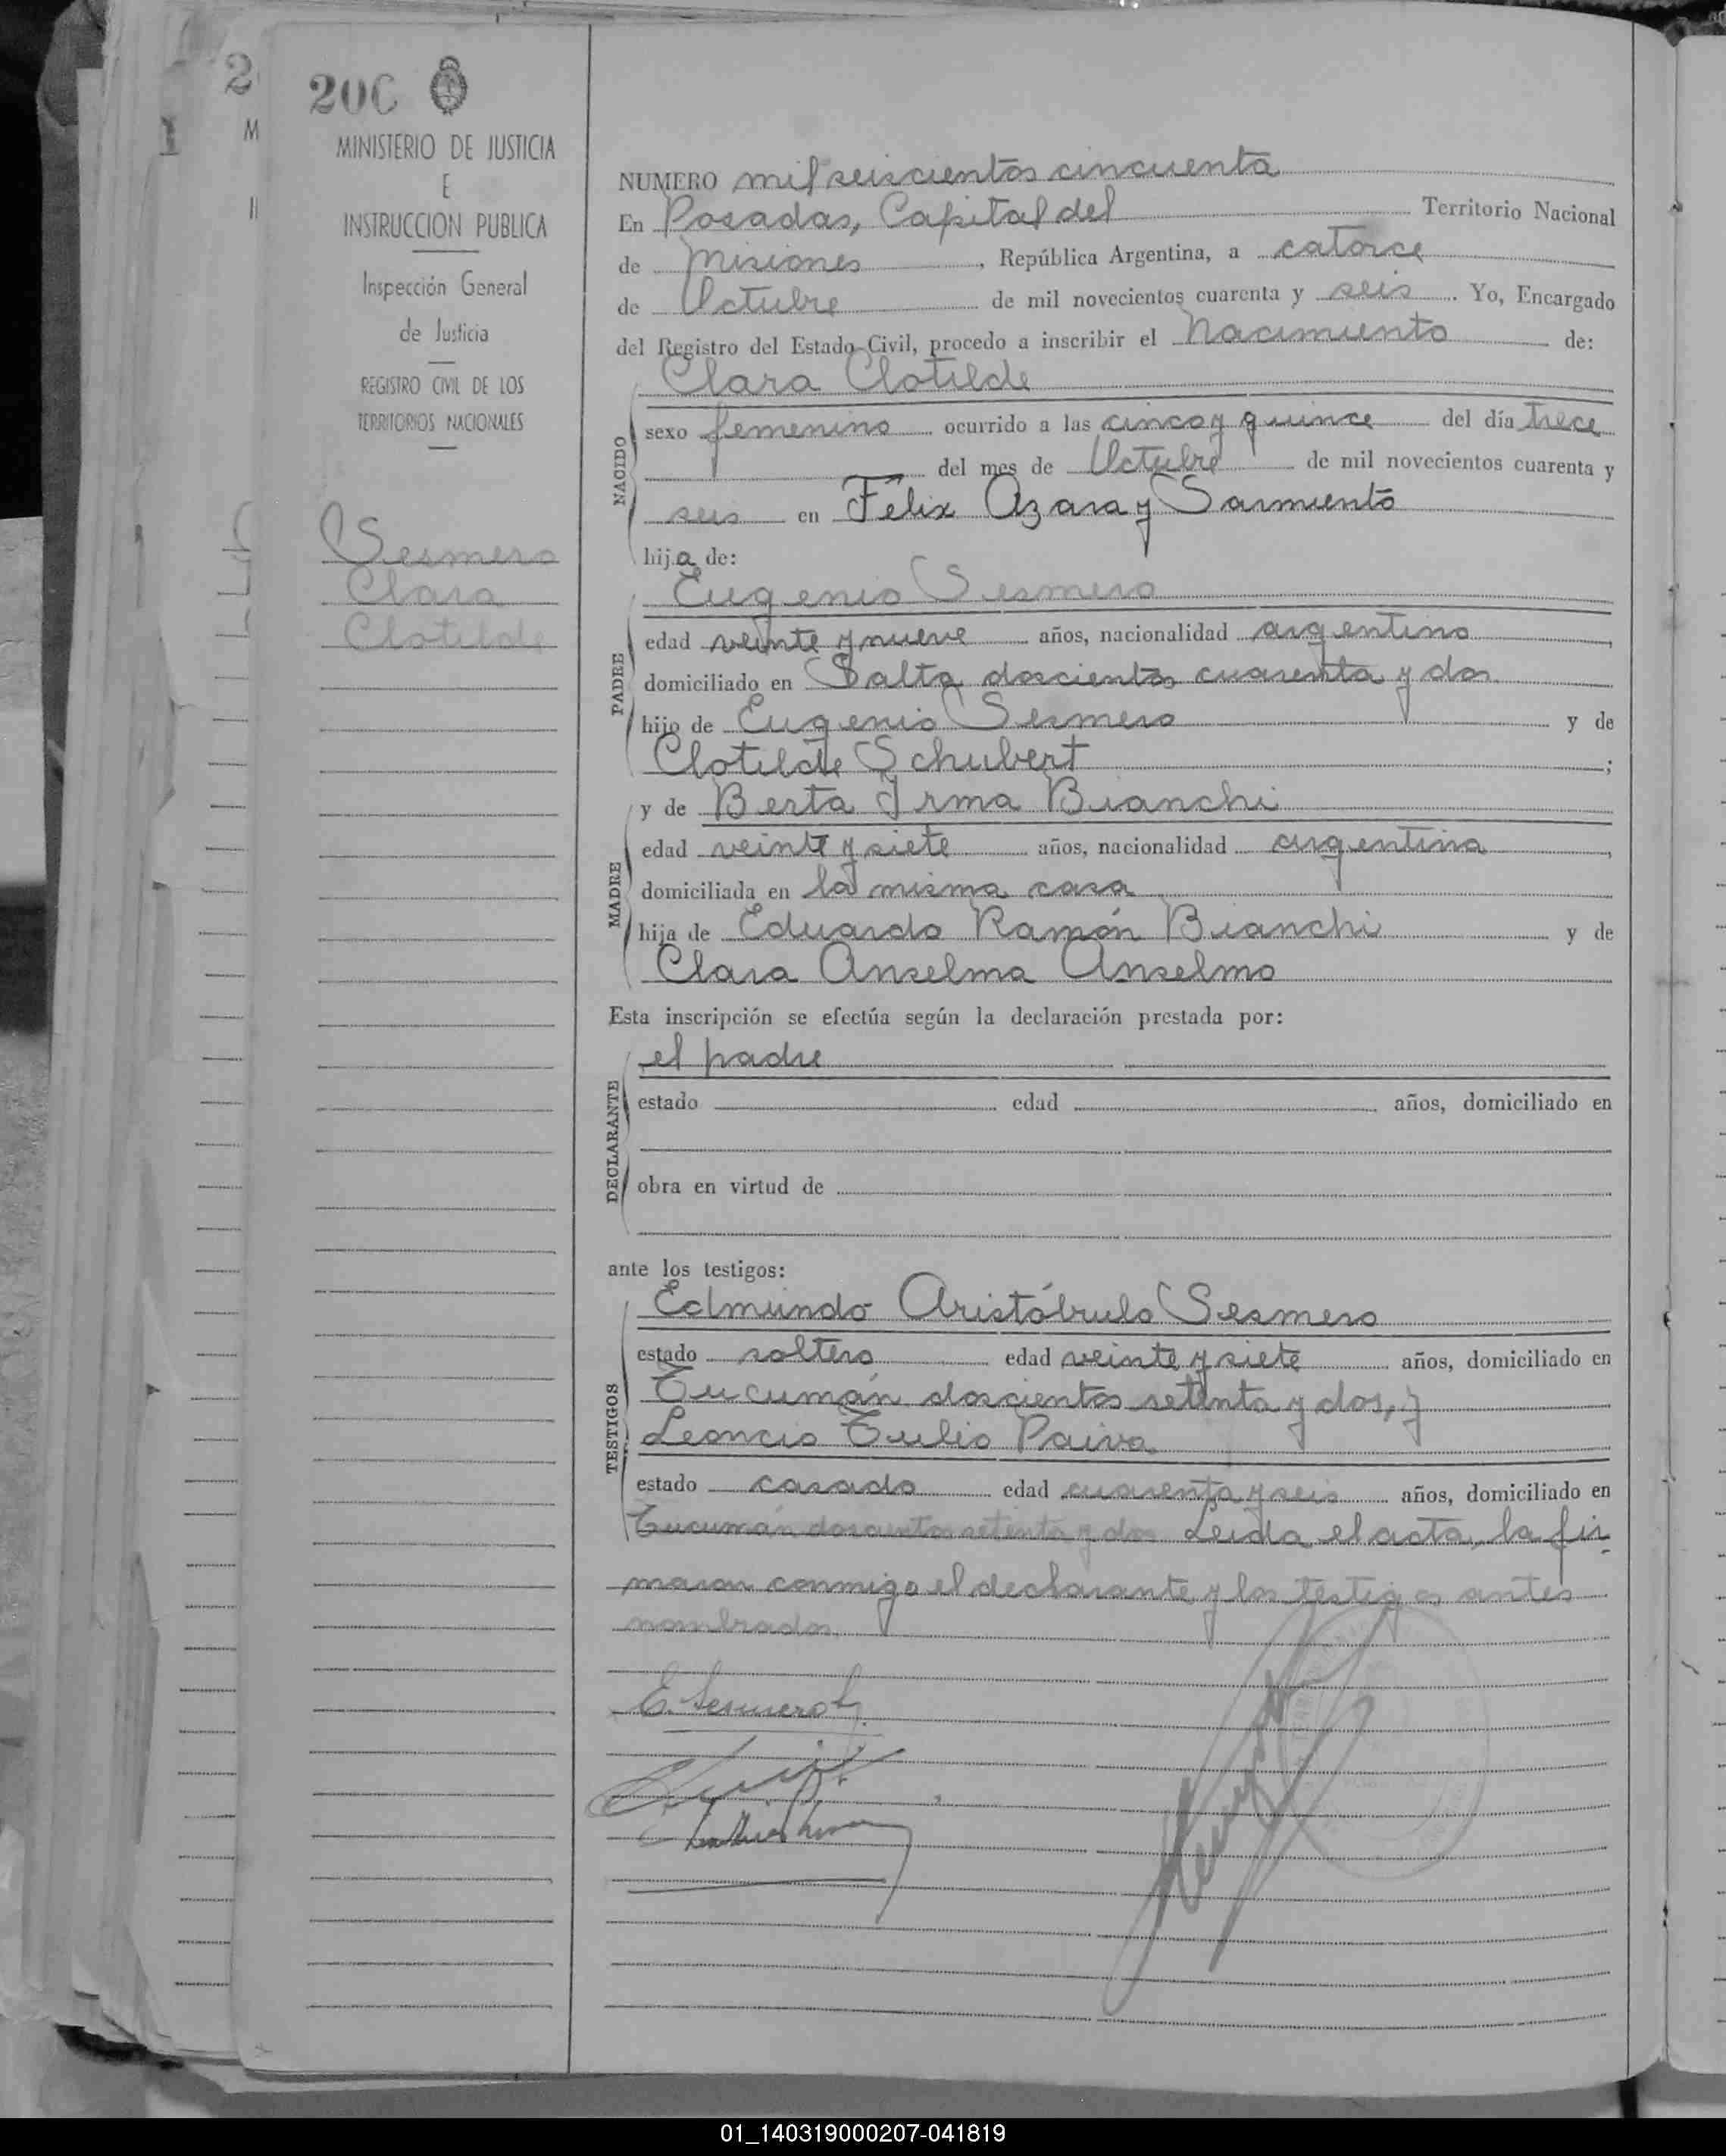 206
MINISTERIO DE JUSTICIA
E
INSTRUCCION PUBLICA
Inspección General
de Justicia
REGISTRO CIVIL DE LOS
TERRITORIOS NACIONALES
Sesmero
Clara
Clotilde
NUMERO mil seiscientos cincuenta
En Posadas, Capital del Territorio Nacional
de Misiones, República Argentina, a catorce
de Octubre de mil novecientos cuarenta y seis. Yo, Encargado
del Registro del Estado Civil, procedo a inscribir el Nacimiento de:
NACIDO
Clara Clotilde
sexo femenino ocurrido a las cinco y quince del día trece
del mes de Octubre de mil novecientos cuarenta y
seis en Félix Azara y Sarmiento
hija de:
PADRE
Eugenio Sesmero
edad veinte y nueve años, nacionalidad argentino,
domiciliado en Salta doscientos cuarenta y dos
hijo de Eugenio Sesmero y de
Clotilde Schubert;
MADRE
y de Berta Irma Bianchi
edad veinte y siete años, nacionalidad argentina,
domiciliada en la misma casa
hija de Eduardo Ramón Bianchi y de
Clara Anselma Anselmo
Esta inscripción se efectúa según la declaración prestada por:
DECLARANTE
el padre
estado edad años, domiciliado en
obra en virtud de
ante los testigos:
TESTIGOS
Edmundo Aristóbulo Sesmero
estado soltero edad veinte y siete años, domiciliado en
Tucumán doscientos setenta y dos, y
Leoncio Tulio Paiva
estado casado edad cuarenta y seis años, domiciliado en
Tucumán doscientos setenta y dos Leida el acta, la fir
maron conmigo el declarante y los testigos antes
nombrados
E. Sesmero
01_140319000207-041819